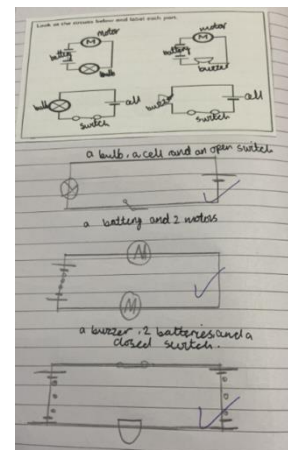 Look at the circuits below and label each part.
motor
M
battery
bulb
motor
M
battery
buzzer
bulb
cell
switch
buzzer
cell
switch
a bulb, a cell and an open switch
a battery and 2 motors
M
M
a buzzer, 2 batteries and a
closed switch.